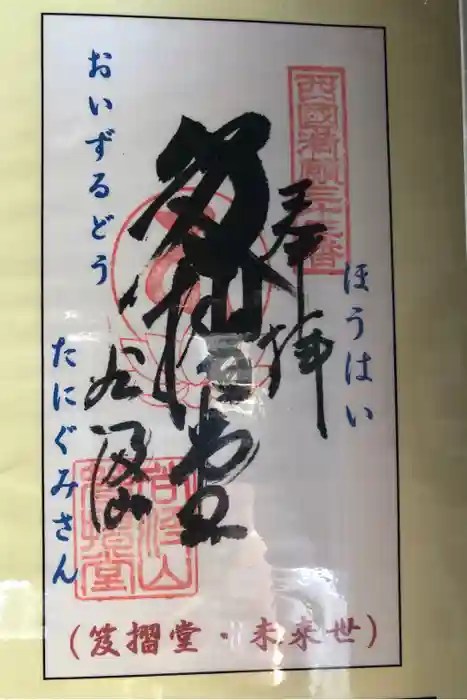 西國満願三十三番
ほうはい
奉拝
笈摺堂
おいずるどう
谷汲山
たにぐみさん
(笈摺堂・未来世)